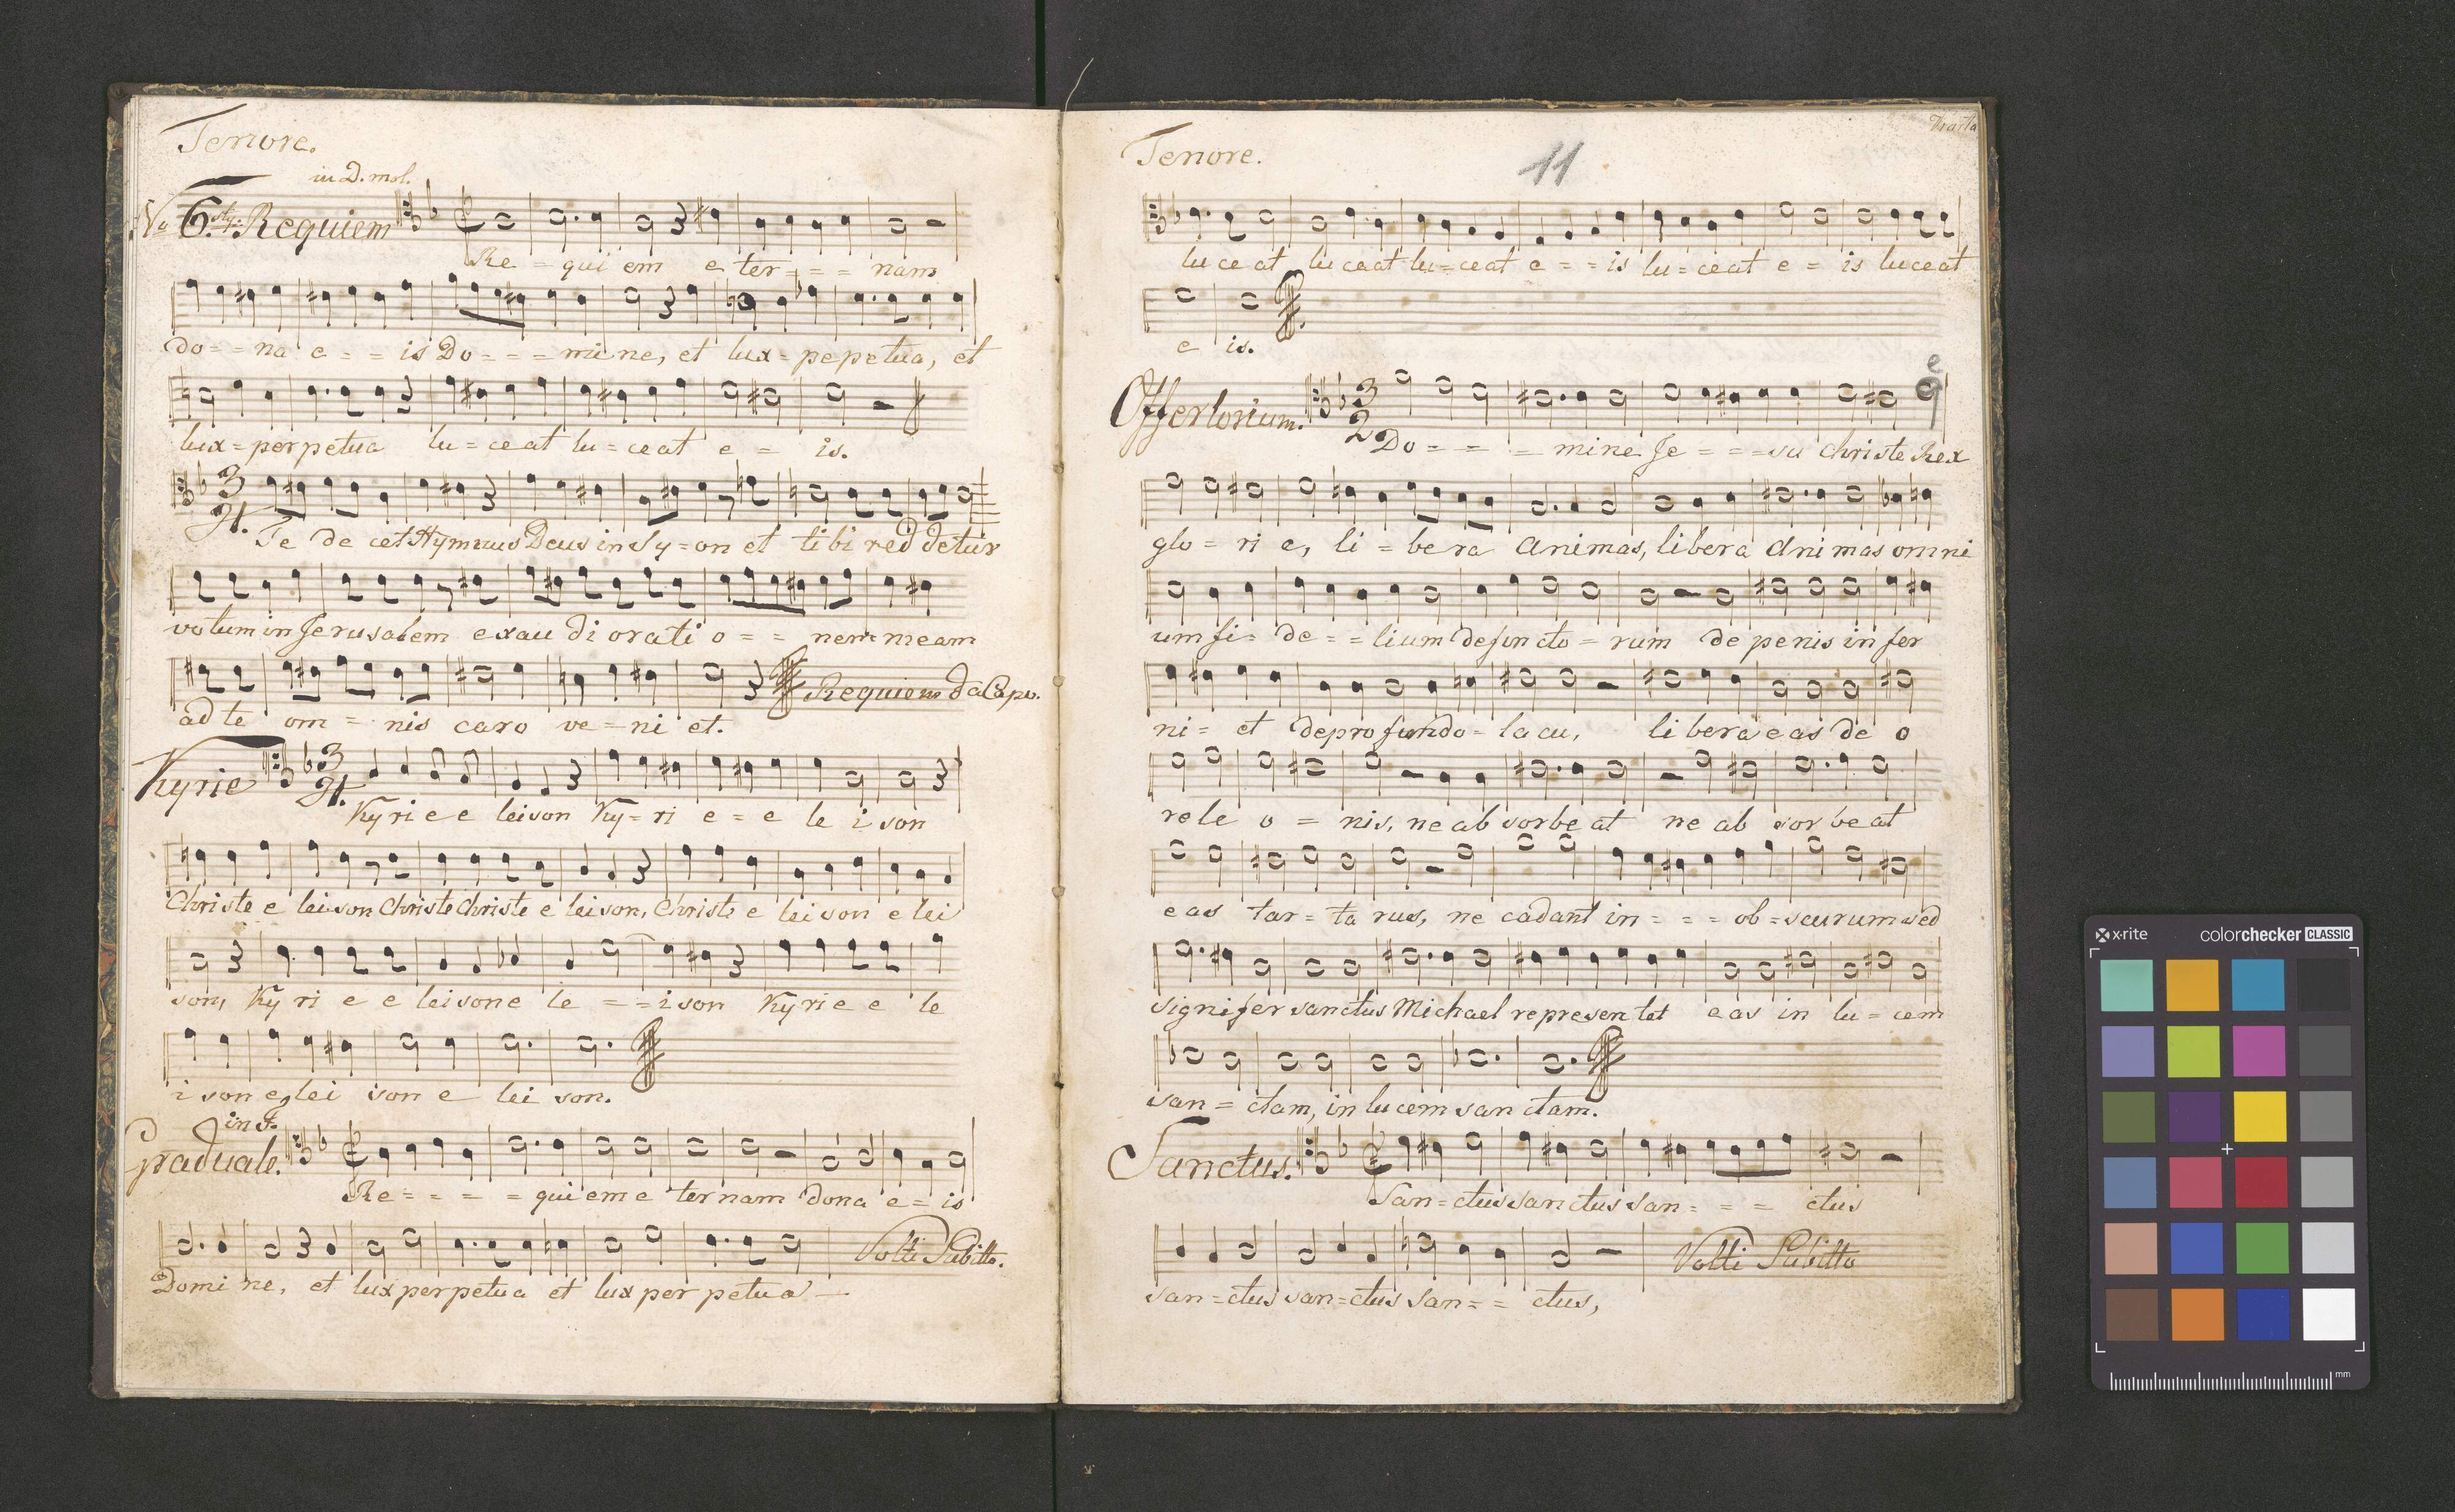 Tenore.
in D. mol.
No 6.sty. Requiem
Re - qui em e ter = = = nam
do = = na e = = is Do = = = mi ne, et lux = pe pe tua, et
lux = per petua lu = ce at lu = ce at e = is.
3
4.
Te de cet Hymnus Deus in Sy = on et tibi red detur
votum in Jerusalem exau di orati o = = nem meam
ad te om = nis caro ve = ni et.
Requiem da Capo.
Kyrie
3
4.
Ky ri e e leison Ky = ri e = e le i son
Christe e leison Christe Christe e leison, Christe e leison e lei
son, Ky ri e e leison e le = = i son Kyrie e le
i son e, lei ison e lei son.
in F.
Graduale.
Re = = = = qui em e ter nam dona e = is
Domi ne, et lux perpetua et lux per petua —
Volti Subitto.
Tenore.
11
luce at luceat lu = ceat e = = is lu = ceat e = is luceat
e is.
Offertorium.
3
2
e
Do = = = mine Je = = = su Christe Rex
glo = ri e, li = bera animas, libera animas omni
um fi = de = = lium defuncto = rum de penis in fer
ni = et de profundo = la cu, li bera e as de o
re le o = nis, ne ab sorbe at ne ab sor be at
e as tar = ta rus, ne cadant in = = = ob = scurum sed
signifer sanctus Michael represen tet e as in lu = cem
san = ctam, in lu cem san ctam.
Sanctus.
San = ctus sanctus san = = = ctus
san = ctus san = ctus san = = ctus,
Volti Subitto
x-rite
colorchecker CLASSIC
mm